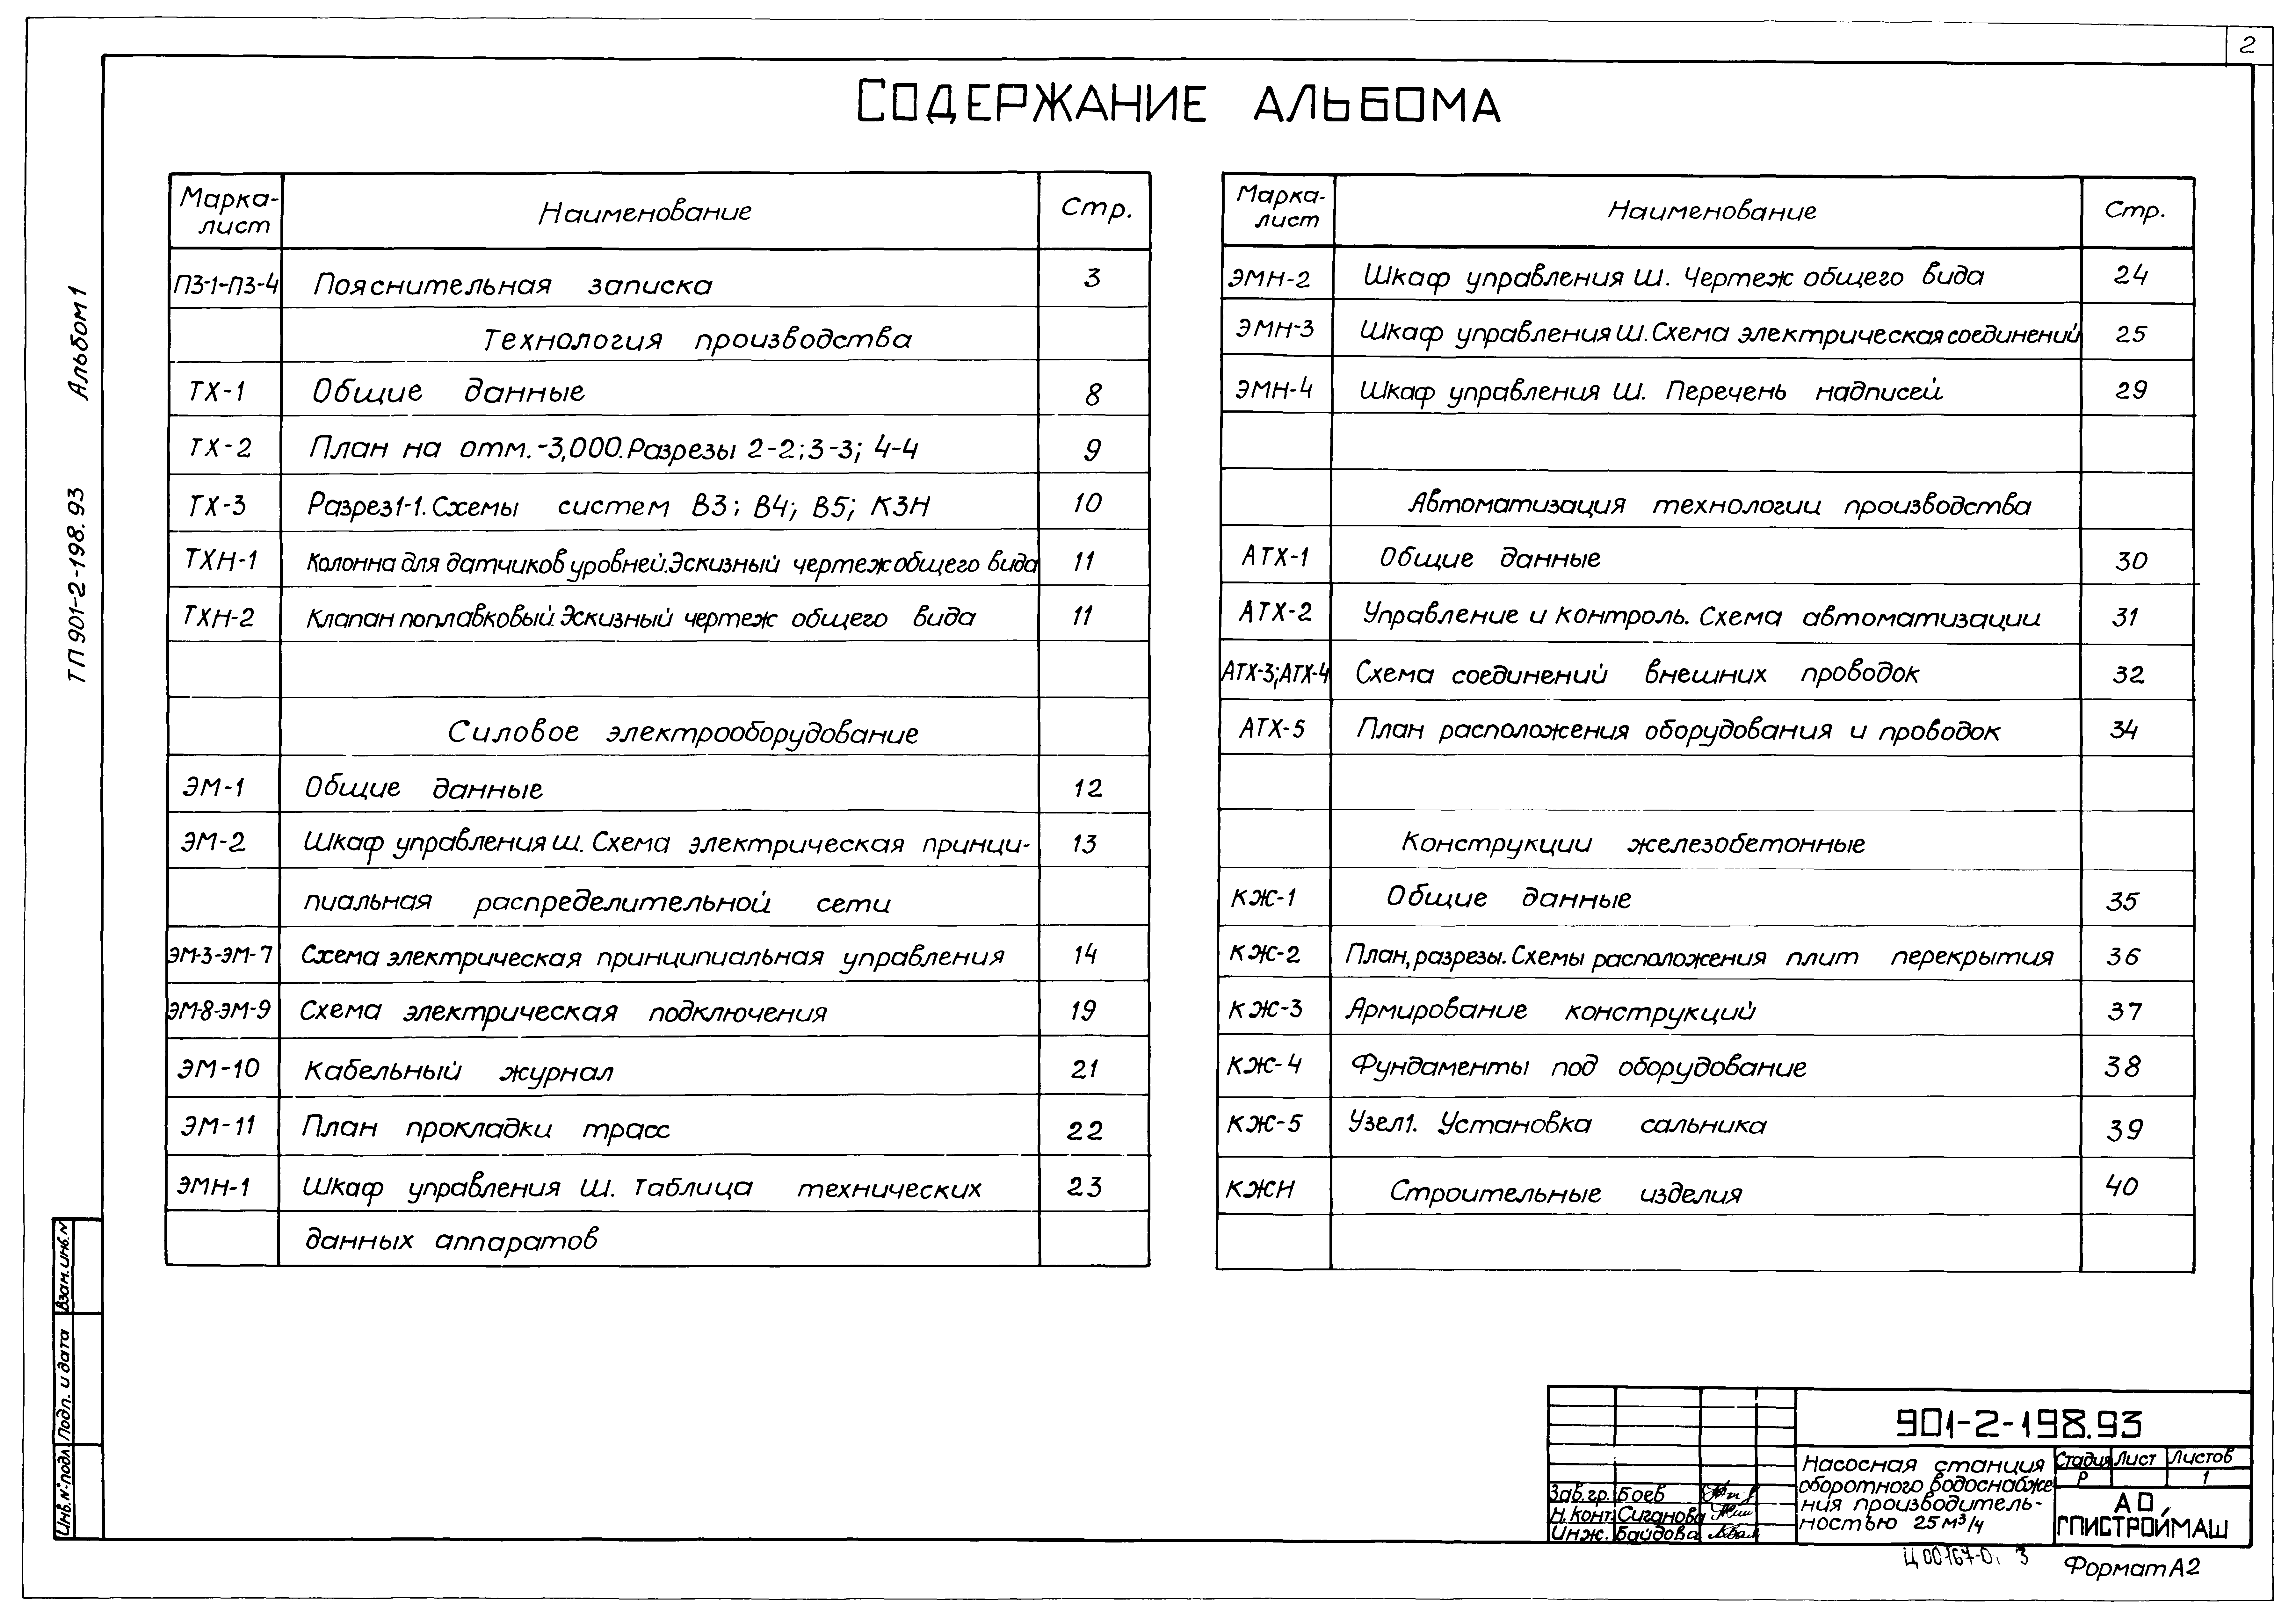 2
СОДЕРЖАНИЕ АЛЬБОМА
Марка-лист Наименование Стр.
ПЗ-1-ПЗ-4 Пояснительная записка 3
Технология производства
ТХ-1 Общие данные 8
ТХ-2 План на отм.-3,000. Разрезы 2-2; 3-3; 4-4 9
ТХ-3 Разрез 1-1. Схемы систем В3; В4; В5; К3Н 10
ТХН-1 Колонна для датчиков уровней. Эскизный чертеж общего вида 11
ТХН-2 Клапан поплавковый. Эскизный чертеж общего вида 11
Силовое электрооборудование
ЭМ-1 Общие данные 12
ЭМ-2 Шкаф управления Ш. Схема электрическая принци- 13
пиальная распределительной сети
ЭМ-3-ЭМ-7 Схема электрическая принципиальная управления 14
ЭМ-8-ЭМ-9 Схема электрическая подключения 19
ЭМ-10 Кабельный журнал 21
ЭМ-11 План прокладки трасс 22
ЭМН-1 Шкаф управления Ш. Таблица технических 23
данных аппаратов
Марка-лист Наименование Стр.
ЭМН-2 Шкаф управления Ш. Чертеж общего вида 24
ЭМН-3 Шкаф управления Ш. Схема электрическая соединений 25
ЭМН-4 Шкаф управления Ш. Перечень надписей 29
Автоматизация технологии производства
АТХ-1 Общие данные 30
АТХ-2 Управление и контроль. Схема автоматизации 31
АТХ-3; АТХ-4 Схема соединений внешних проводок 32
АТХ-5 План расположения оборудования и проводок 34
Конструкции железобетонные
КЖ-1 Общие данные 35
КЖ-2 План, разрезы. Схемы расположения плит перекрытия 36
КЖ-3 Армирование конструкций 37
КЖ-4 Фундаменты под оборудование 38
КЖ-5 Узел 1. Установка сальника 39
КЖИ Строительные изделия 40
ТП 901-2-198.93 Альбом 1
Инв.№подл. Подп. и дата Взам.инв.N
901-2-198.93
Насосная станция
оборотного водоснабже-
ния производитель-
ностью 25 м³/ч
Стадия Лист Листов
Р 1
АО
ГПИСТРОЙМАШ
Зав.гр. Боев
Н.конт. Сиганова
Инж. Байдова
Ц00167-0 3
Формат А2